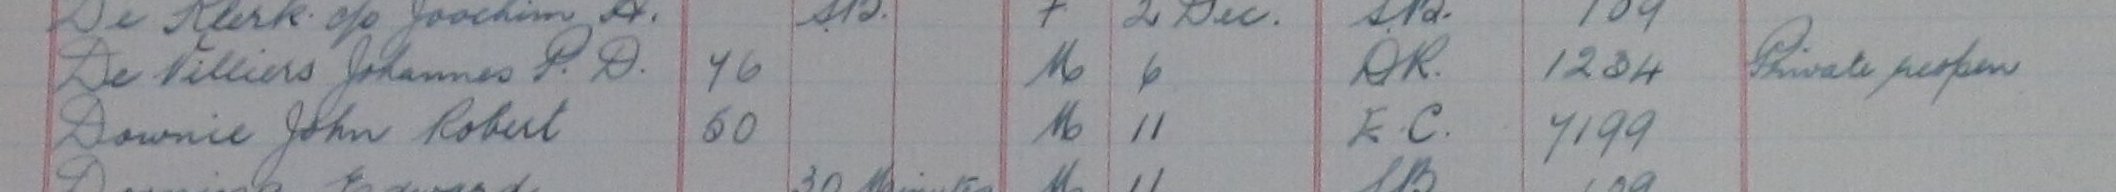 De Klerk c/o Joachim H. S.B. F 2 Dec. S.B. 109
De Villiers Johannes P. D. 76 M 6 D.R. 1234 Private reopen
Downie John Robert 60 M 11 E.C. 7199
Edward 30 Minutes M 11 SB 109